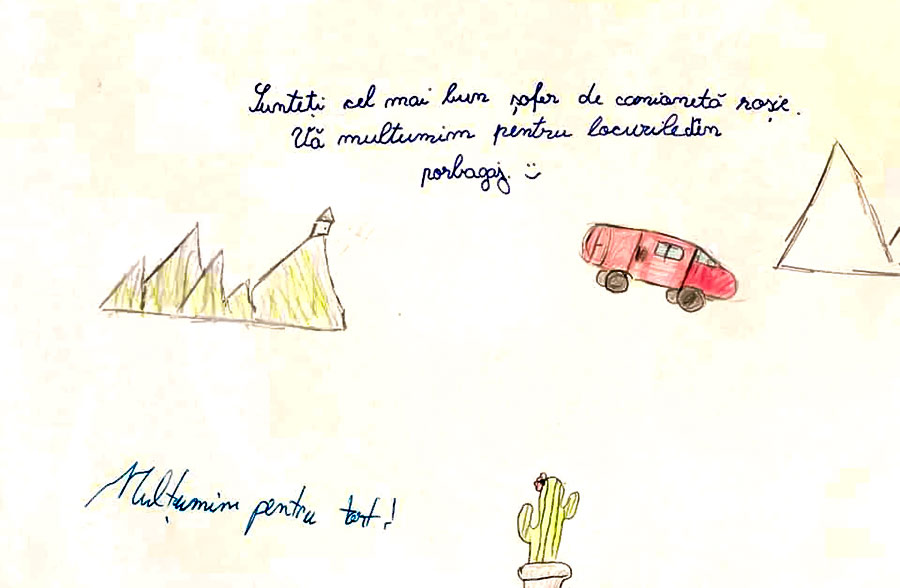 Sunteți cel mai bun șofer de camionetă roșie.
Vă multumim pentru locurile din
porbagaj. :)
Mulțumim pentru tort!